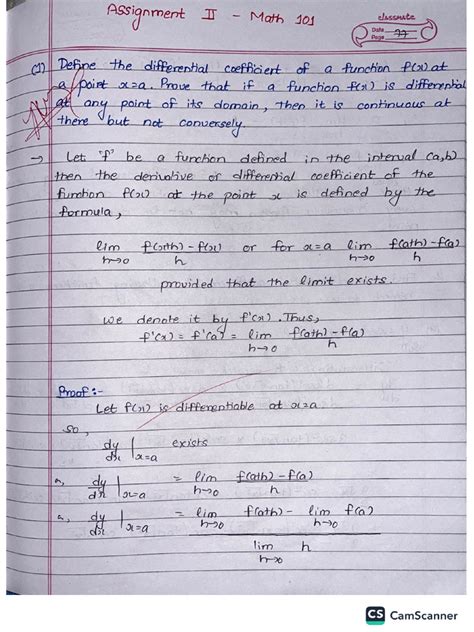 Assignment II - Math 101
classmate
Date
Page 77
(1) Define the differential coefficient of a function f(x) at
a point x=a. Prove that if a function f(x) is differential
at any point of its domain, then it is continuous at
there but not conversely.
→ Let 'f' be a function defined in the interval (a,b)
then the derivative or differential coefficient of the
function f(x) at the point x is defined by the
formula,
lim h→0 f(x+h)-f(x) / h or for x=a lim h→0 f(a+h)-f(a) / h
provided that the limit exists.
we denote it by f'(x). Thus,
f'(x) = f'(a) = lim h→0 f(a+h)-f(a) / h
Proof :-
Let f(x) is differentiable at x=a
so,
dy/dx | x=a exists
a, dy/dx | x=a = lim h→0 f(a+h)-f(a) / h
a, dy/dx | x=a = lim h→0 f(a+h) - lim h→0 f(a) / lim h→0 h
CS CamScanner